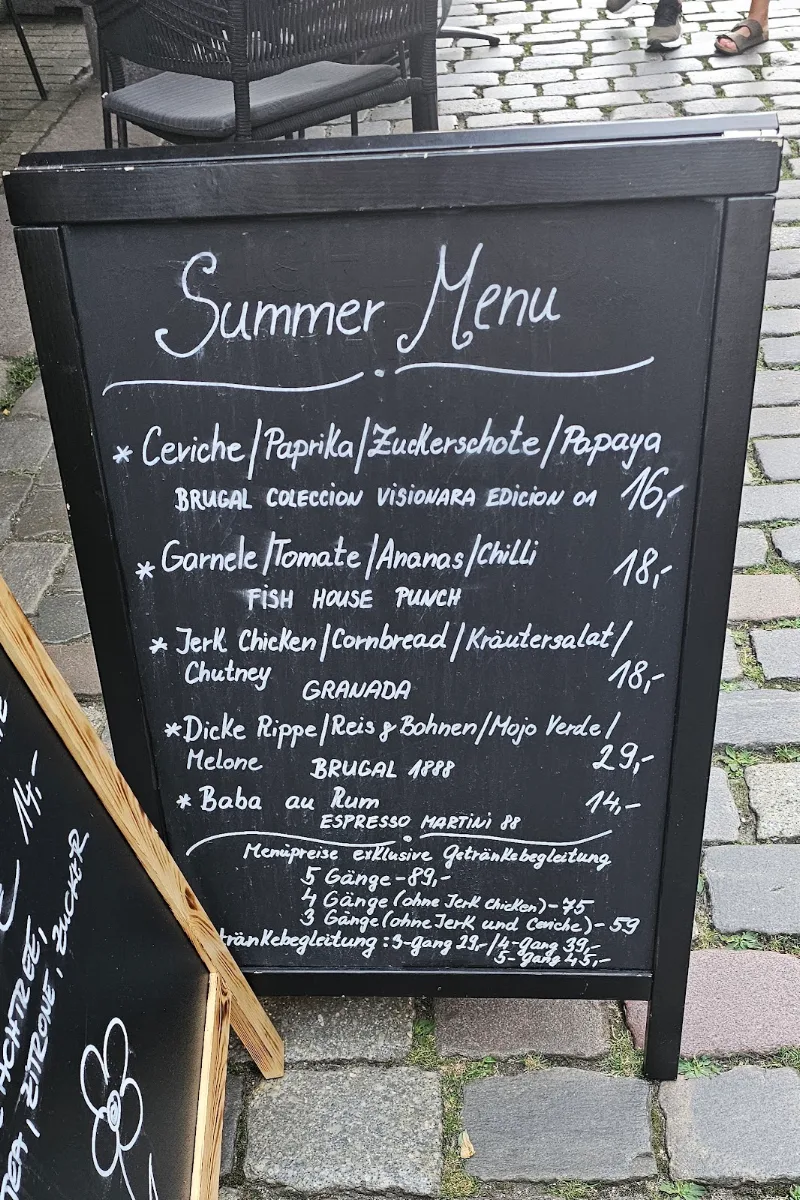 Summer Menu
* Ceviche/Paprika/Zuckerschote/Papaya
BRUGAL COLECCION VISIONARA EDICION 01 16,-
* Garnele/Tomate/Ananas/Chilli 18,-
FISH HOUSE PUNCH
* Jerk Chicken/Cornbread/Kräutersalat/
Chutney 18,-
GRANADA
* Dicke Rippe/Reis & Bohnen/Mojo Verde/
Melone BRUGAL 1888 29,-
* Baba au Rum 14,-
ESPRESSO MARTINI 88
Menüpreise exklusive Getränkebegleitung
5 Gänge - 89,-
4 Gänge (ohne Jerk Chicken) - 75
3 Gänge (ohne Jerk und Ceviche) - 59
tränkebegleitung : 3-gang 29,-/4-gang 39,-
5-gang 45,-
14,-
, ZITRONE, ZUCKER